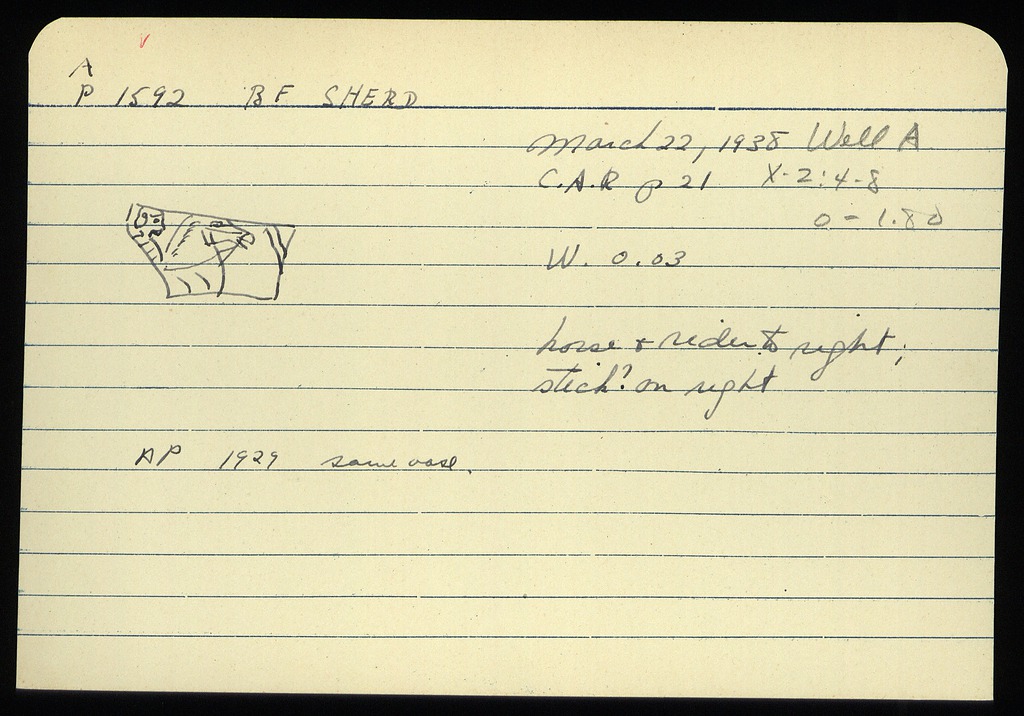 A
P 1592 BF SHERD
March 22, 1938 Well A
C.A.R p 21 X-2:4-8
0-1.80
W. 0.03
horse & rider to right;
stick? on right
AP 1929 same vase.